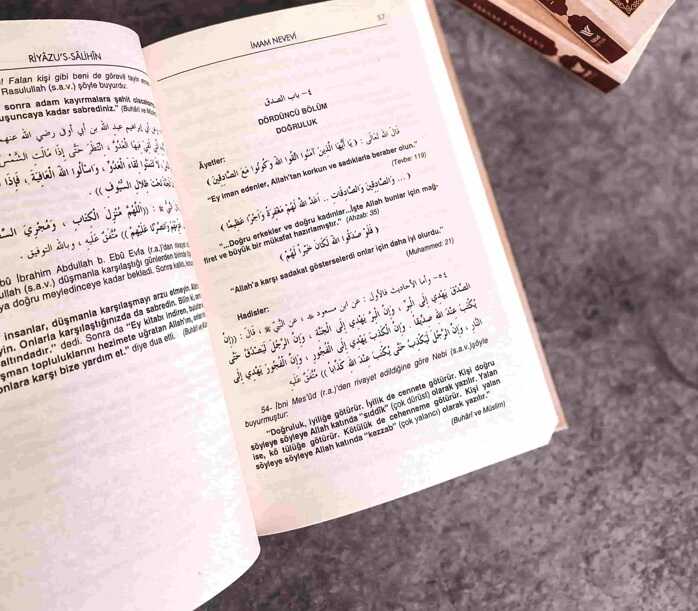 RİYÂZU'S-SÂLİHÎN
! Falan kişi gibi beni de görevli tayin etmez
Rasulullah (s.a.v.) şöyle buyurdu:
sonra adam kayırmalara şahit olacaksınız
uşuncaya kadar sabrediniz." (Buhârî ve Mü
إبراهيم عبد الله بن أبي أوفى رضي الله عنهما
فيها العدو ، انتظر حتى إذا مالت الشمس
لقاء العدو ، واسألوا الله العافية ، فإذا
تحت ظلال السيوف )) .
(( اللهم منزل الكتاب ، ومجري الس
وانصرنا عليهم )) متفق عليه ، وبالله التوفيق .
ebû İbrahim Abdullah b. Ebû Evfa (r.a.)'den rivayet
ullah (s.a.v.) düşmanla karşılaştığı günlerden birinde
ya doğru meyledinceye kadar bekledi. Sonra kalktı,
insanlar, düşmanla karşılaşmayı arzu etmeyin.
yin. Onlarla karşılaştığınızda da sabredin. Bilin ki,
altındadır." dedi. Sonra da "Ey kitabı indiren, bulutları
şman topluluklarını hezimete uğratan Allah'ım,
onlara karşı bize yardım et." diye dua etti. (Buhârî ve
İMAM NEVEVİ
57
٤- باب الصدق
DÖRDÜNCÜ BÖLÜM
DOĞRULUK
Âyetler:
قال الله تعالى : ﴿ يا أيها الذين آمنوا اتقوا الله وكونوا مع الصادقين ﴾
"Ey iman edenler, Allah'tan korkun ve sadıklarla beraber olun."
(Tevbe: 119)
﴿ ... والصادقين والصادقات ... أعد الله لهم مغفرة وأجرا عظيما ﴾
"...Doğru erkekler ve doğru kadınlar...İşte Allah bunlar için mağ-
firet ve büyük bir mükafat hazırlamıştır." (Ahzab: 35)
﴿ فلو صدقوا الله لكان خيرا لهم ﴾
"Allah'a karşı sadakat gösterselerdi onlar için daha iyi olurdu."
(Muhammed: 21)
Hadisler:
٥٤- وأما الأحاديث فالأول : عن ابن مسعود ، عن النبي ﷺ ، قال : (( إن
الصدق يهدي إلى البر ، وإن البر يهدي إلى الجنة ، وإن الرجل ليصدق حتى
يكتب عند الله صديقا . وإن الكذب يهدي إلى الفجور ، وإن الفجور يهدي إلى
النار ، وإن الرجل ليكذب حتى يكتب عند الله كذابا )) متفق عليه
54- İbni Mes'ûd (r.a.)'den rivayet edildiğine göre Nebi (s.a.v.)şöyle
buyurmuştur:
"Doğruluk, iyiliğe götürür. İyilik de cennete götürür. Kişi doğru
söyleye söyleye Allah katında "sıddîk" (çok dürüst) olarak yazılır. Yalan
ise, kö tülüğe götürür. Kötülük de cehenneme götürür. Kişi yalan
söyleye söyleye Allah katında "kezzab" (çok yalancı) olarak yazılır."
(Buhârî ve Müslim)
İMAM NEVEVİ